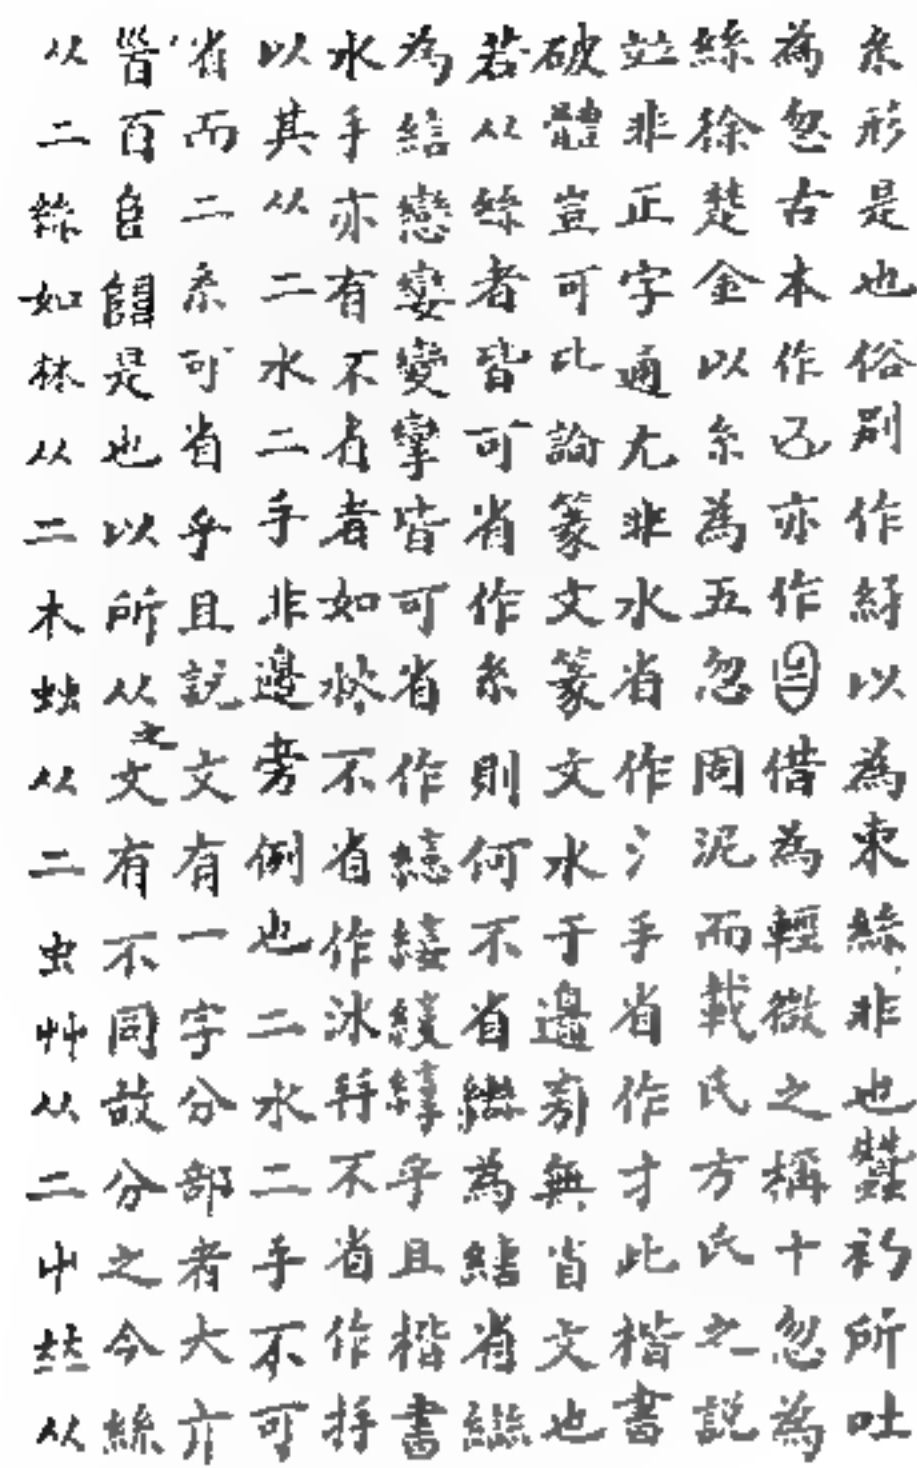 糸形是也俗別作紆以為束絲非也蠶初所吐
為忽古本作㔾亦作借為輕微之稱十忽為
絲徐楚金以糸為五忽周泥而載氏方氏之説
竝非正字通尢非水省作氵手省作才此楷書
破體豈可比論篆文篆文水于邊旁無省文也
若从絲者皆可省作糸則何不省繼為結省繼
為結戀孌變攣皆可省作乎且楷書
水手亦有不省者如不省作冰拜不省作拝
以其从二水二手非邊旁例也二水二手不可
省而二糸可省乎且説文有一字分部者大亣
𦣻百自是也以所从之文有不同故分之今絲
从二絲如林从二木䖵从二虫艸从二屮竝从